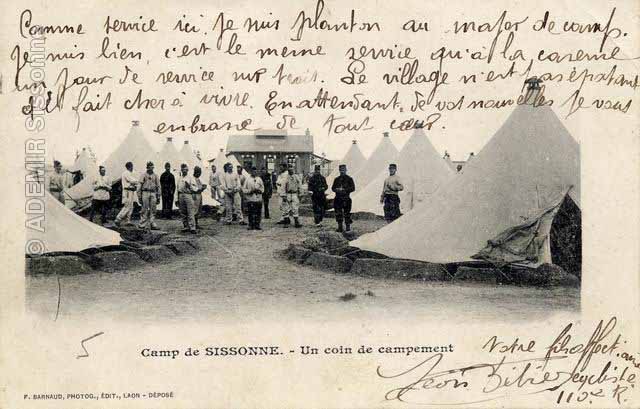 Comme service ici je suis planton au major de camp.
je suis bien, c'est le meme service qu'à la caserne
un jour de service sur trois. Le village n'est pas épatant
et il fait cher à vivre. En attendant de vos nouvelles je vous
embrasse de tout cœur.
© ADEMIR Sissonne
5
Camp de SISSONNE. - Un coin de campement
Votre
Léon
cycliste
F. BARNAUD, PHOTOG., ÉDIT., LAON - DÉPOSÉ